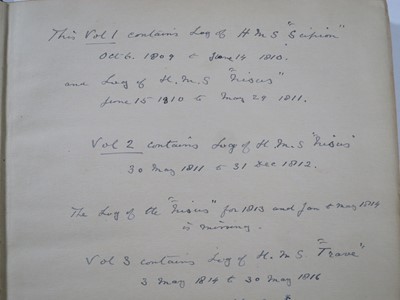 This Vol 1 contains Log of H M S "Scipion"
Oct 6. 1809 to June 14 1810.
and Log of H. M. S "Nisus"
June 15 1810 to May 29 1811.
Vol 2 contains Log of H. M. S "Nisus"
30 May 1811 to 31 Dec 1812.
The Log of the "Nisus" for 1813 and Jan to May 1814
is missing.
Vol 3 contains Log of H. M. S "Trave"
3 May 1814 to 30 May 1816